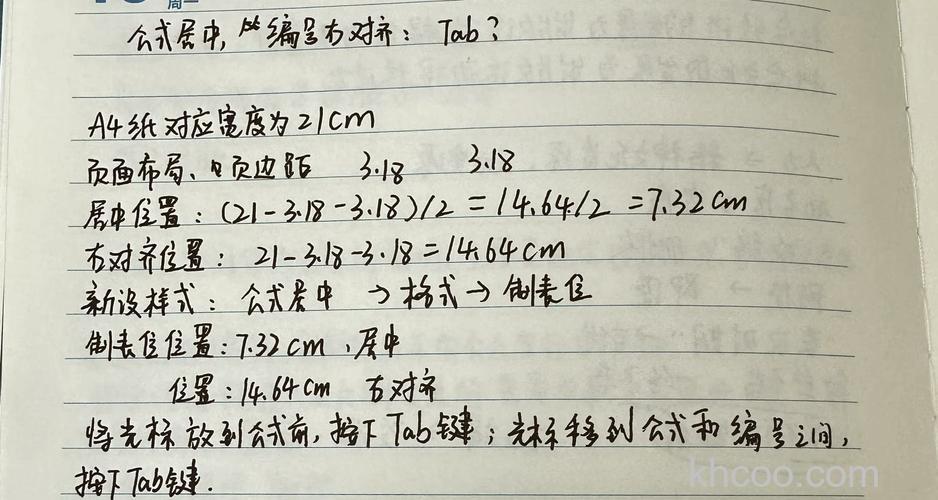 周一
公式居中, 编号右对齐: Tab?
A4纸对应宽度为21cm
页面布局、页边距 3.18 3.18
居中位置: (21-3.18-3.18)/2 = 14.64/2 = 7.32cm
右对齐位置: 21-3.18-3.18=14.64cm
新设样式: 公式居中 → 格式 → 制表位
制表位位置: 7.32cm, 居中
位置: 14.64cm 右对齐
将光标放到公式前, 按下Tab键; 光标移到公式和编号之间,
按下Tab键.
khcoo.com